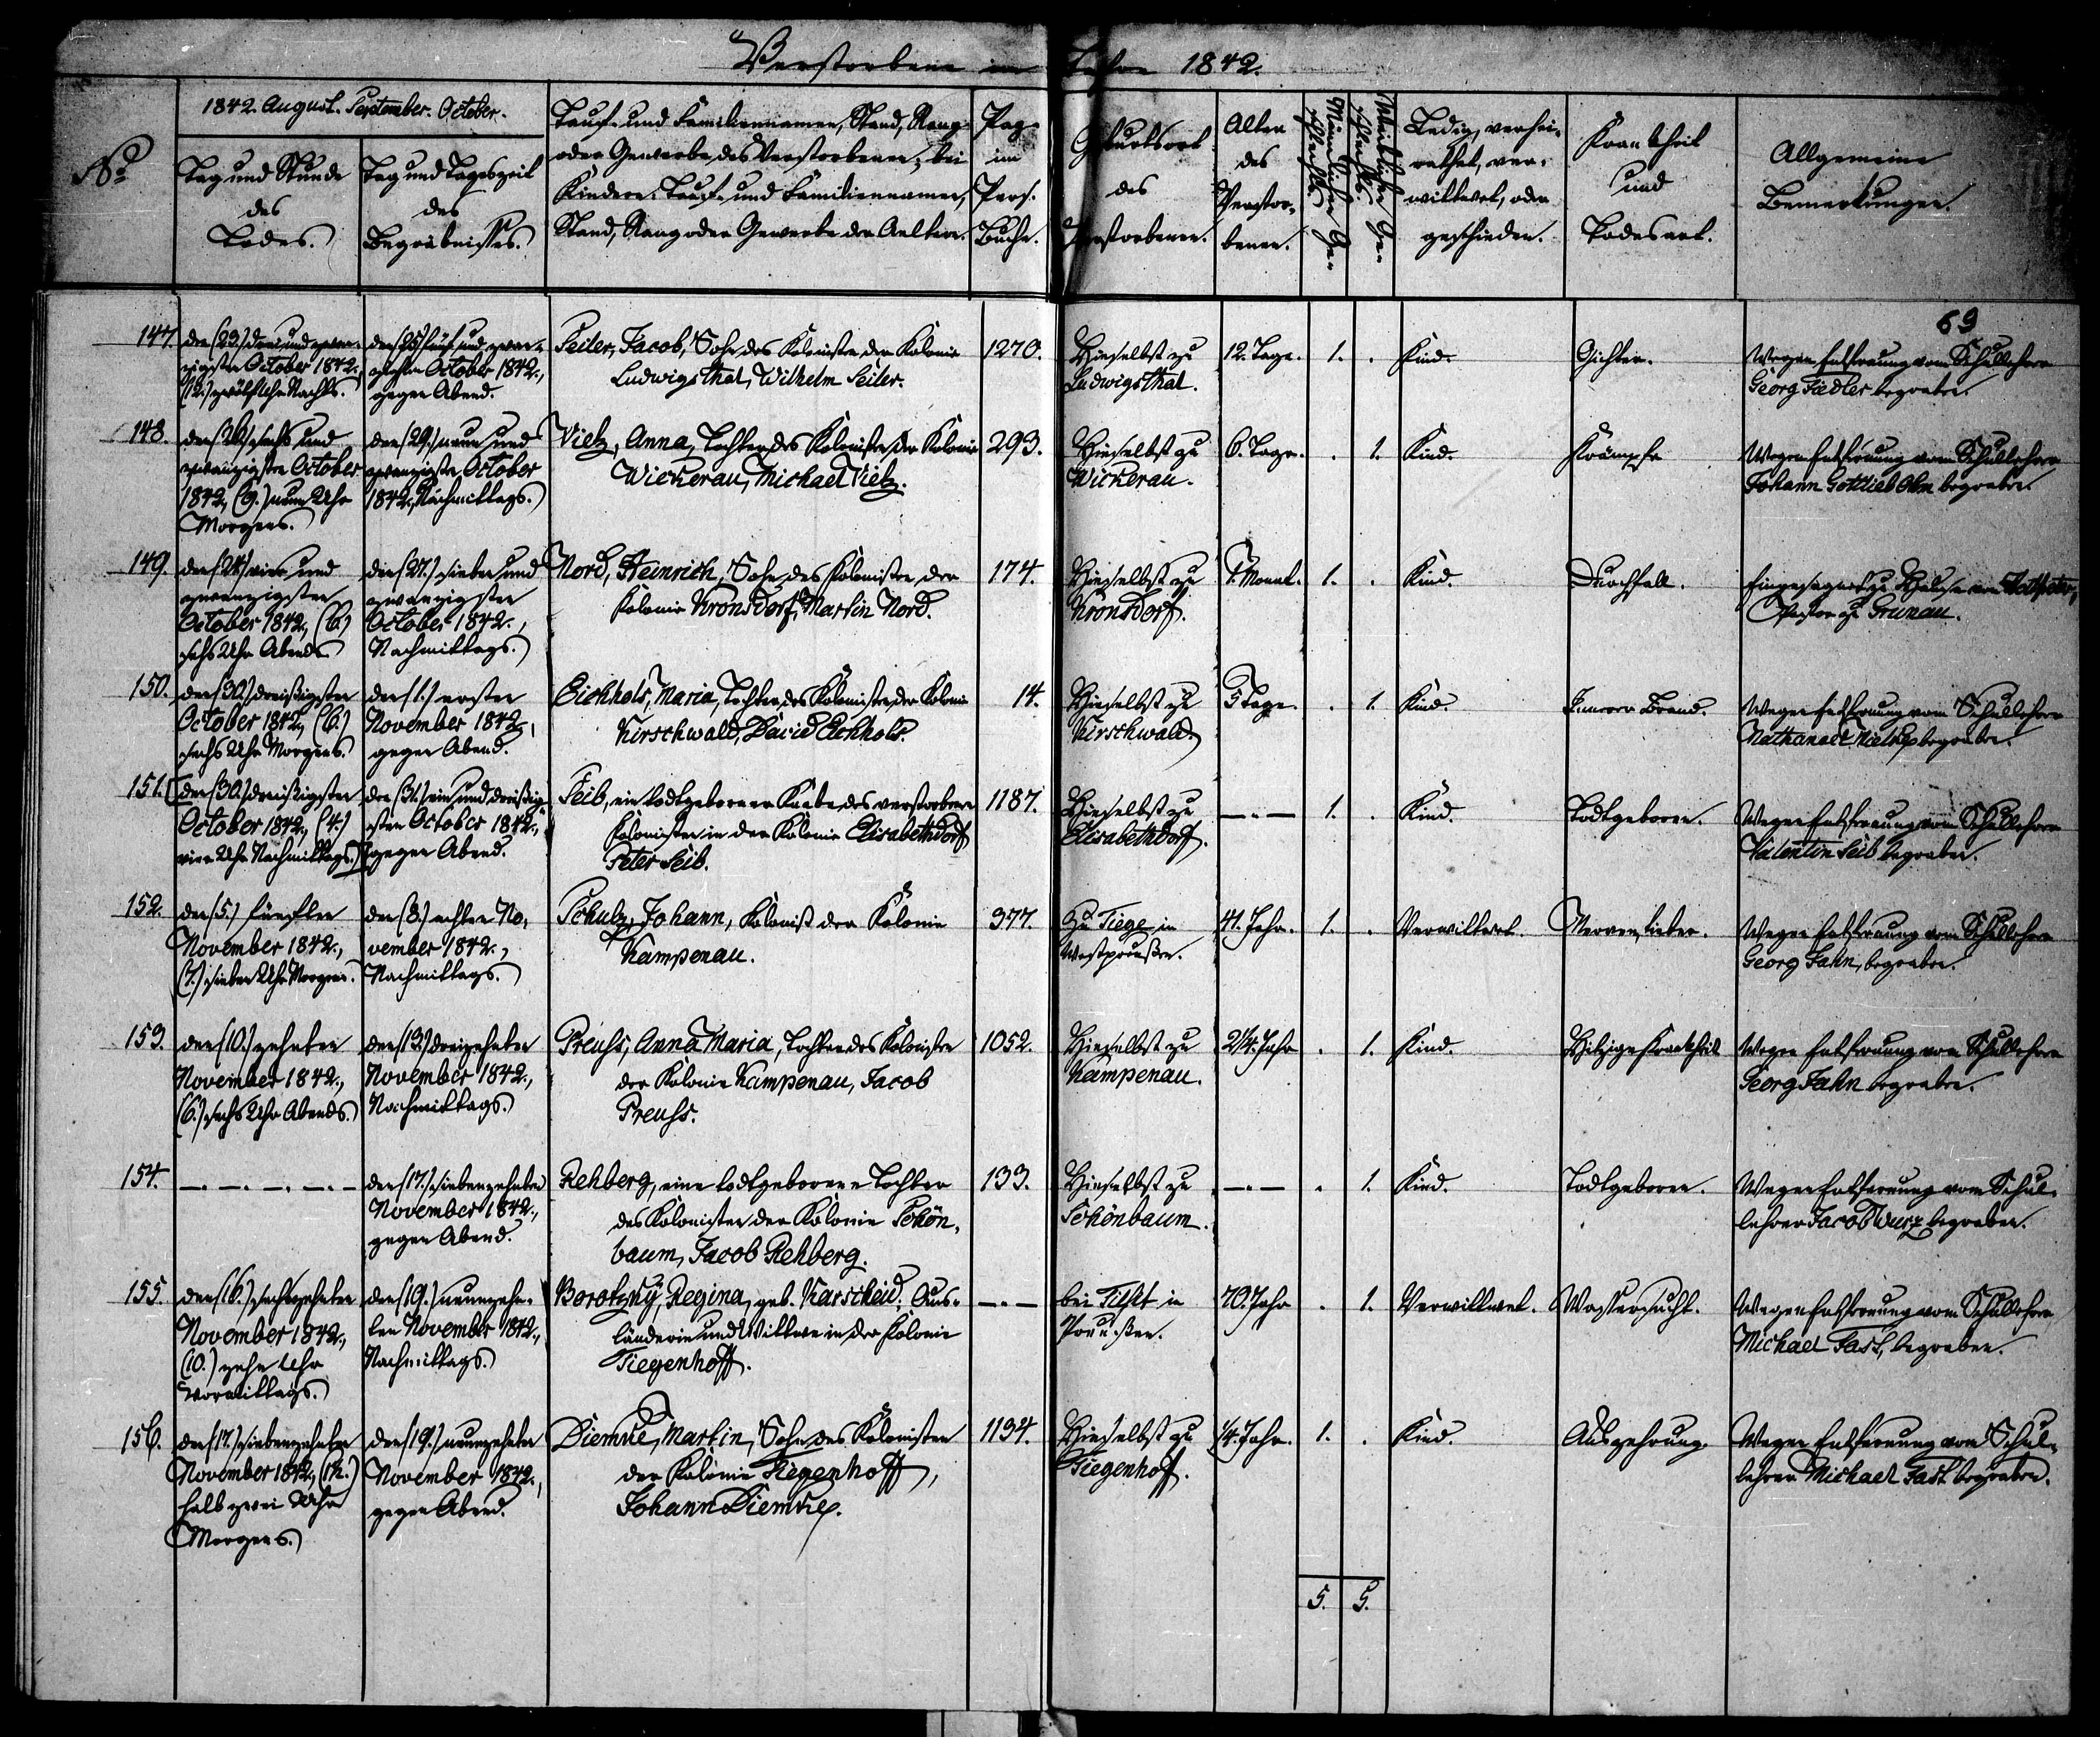 Verstorbene im Jahre 1842.
69
No
1842. August. September. October.
Tag und Stunde
des
Todes.
Tag und Tageszeit
des
Begräbnisses.
Tauf- und Familiennamen, Stand, Rang
oder Gewerbe des Verstorbenen; bei
Kindern: Tauf- und Familiennamen,
Stand, Rang oder Gewerbe der Aeltern.
Pag.
im
Pers.
Buche.
Geburtsort
des
Verstorbenen.
Alter
des
Verstor-
benen.
Männlichen Ge-
schlechts.
Weiblichen Ge-
schlechts.
Ledig, verhei-
rathet, ver-
wittwet, oder
geschieden.
Krankheit
und
Todesart.
Allgemeine
Bemerkungen.
147.
den (23.) drei und zwan-
zigsten October 1842.,
(12.) zwölf Uhr Nachts.
den (25.) fünf und zwan-
zigsten October 1842.,
gegen Abend.
Seiler, Jacob, Sohn des Kolonisten der Kolonie
Ludwigsthal, Wilhelm Seiler.
1270.
Hieselbst zu
Ludwigsthal.
12. Tage.
1.
.
Kind.
Gichter.
Wegen Entfernung vom Schullehrer
Georg Fiedler begraben.
148.
den (26.) sechs und
zwanzigsten October
1842., (9.) neun Uhr
Morgens.
den (29.) neun und
zwanzigsten October
1842., Nachmittags.
Vielz, Anna, Tochter des Kolonisten der Kolonie
Wickerau, Michael Vielz.
293.
Hieselbst zu
Wickerau.
6. Tage.
.
1.
Kind.
Krämpfe
Wegen Entfernung vom Schullehrer
Johann Gottlieb Ohm begraben.
149.
den (24.) vier und
zwanzigsten
October 1842., (6.)
sechs Uhr Abends.
den (27.) sieben und
zwanzigsten
October 1842.,
Nachmittags.
Nord, Heinrich, Sohn des Kolonisten der
Kolonie Kronsdorf, Martin Nord.
174.
Hieselbst zu
Kronsdorf.
1. Monat.
1.
.
Kind.
Durchfall.
Eingesegnet zu Hause von
Pastor zu Grunau.
150.
den (30.) dreißigsten
October 1842., (6.)
sechs Uhr Morgens.
den (1.) ersten
November 1842.,
gegen Abend.
Eichholz, Maria, Tochter des Kolonisten der Kolonie
Kirschwald, David Eichholz.
14.
Hieselbst zu
Kirschwald.
5 Tage.
.
1.
Kind.
Innerer Brand.
Wegen Entfernung vom Schullehrer
Nathanael begraben.
151.
den (30.) dreißigsten
October 1842., (4.)
vier Uhr Nachmittags.
den (31.) ein und dreißig-
sten October 1842.,
gegen Abend.
Seib, ein todtgeborener Knabe des verstorbenen
Kolonisten in der Kolonie Elisabethdorf
Peter Seib.
1187.
Hieselbst zu
Elisabethdorf.
—.—
1.
.
Kind.
Todtgeboren.
Wegen Entfernung vom Schullehrer
Valentin Seib begraben.
152.
den (5.) fünften
November 1842.,
(7.) sieben Uhr Morgens.
den (8.) achten No-
vember 1842.,
Nachmittags.
Schulz, Johann, Kolonist der Kolonie
Kampenau.
377.
Zu Tiege in
Westpreußen.
41. Jahr.
1.
.
Verwittwet.
Nervenfieber.
Wegen Entfernung vom Schullehrer
Georg Jahn, begraben.
153.
den (10.) zehnten
November 1842.,
(6.) sechs Uhr Abends.
den (13.) dreizehnten
November 1842.,
Nachmittags.
Preuss, Anna Maria, Tochter des Kolonisten
der Kolonie Kampenau, Jacob
Preuss.
1052.
Hieselbst zu
Kampenau.
2 1/4. Jahr
.
1.
Kind.
Hitzige Krankheit
Wegen Entfernung vom Schullehrer
Georg Jahn begraben.
154.
—.—.—.—.—
den (17.) siebenzehnten
November 1842.,
gegen Abend.
Rehberg, eine todtgeborene Tochter
des Kolonisten der Kolonie Schön-
baum, Jacob Rehberg.
133.
Hieselbst zu
Schönbaum.
—.—
.
1.
Kind.
Todtgeboren.
Wegen Entfernung vom Schul-
lehrer Jacob Wurz begraben.
155.
den (16.) sechszehnten
November 1842.,
(10.) zehn Uhr
Vormittags.
den (19.) neunzehn-
ten November 1842.,
Nachmittags.
Borotzny, Regina, geb. Karscheid, Aus-
länderin und Wittwe in der Kolonie
Tiegenhoff.
—.—
bei Tilsit in
Preußen.
70. Jahr
.
1.
Verwittwet.
Wassersucht.
Wegen Entfernung vom Schullehrer
Michael Fast, begraben.
156.
den (17.) siebenzehnten
November 1842., (1½.)
halb zwei Uhr
Morgens.
den (19.) neunzehnten
November 1842.,
gegen Abend.
Diemke, Martin, Sohn des Kolonisten
der Kolonie Tiegenhoff,
Johann Diemke.
1134.
Hieselbst zu
Tiegenhoff.
1/4. Jahr.
1.
.
Kind.
Auszehrung.
Wegen Entfernung vom Schul-
lehrer Michael Fast begraben.
5.
5.